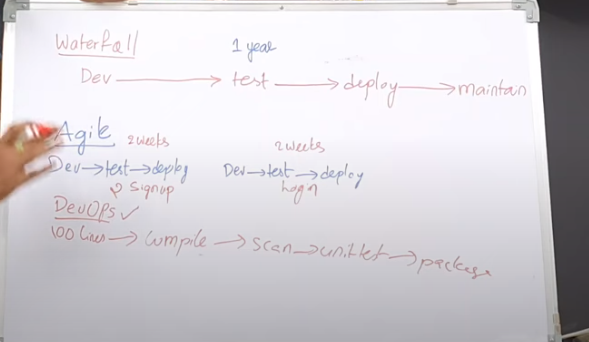 Waterfall 1 year
Dev → test → deploy → maintain
Agile 2 weeks 2 weeks
Dev → test → deploy Dev → test → deploy
Signup Login
DevOps ✓
100 lines → Compile → Scan → unittest → package